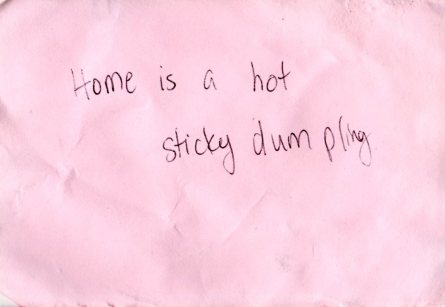 Home is a hot
sticky dumpling